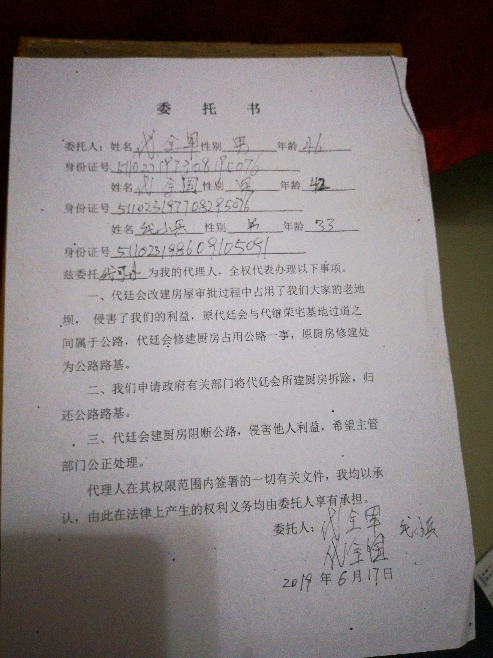 委 托 书
委托人：姓名 代全军 性别 男 年龄 46
身份证号 511023197308195076
姓名 代全国 性别 男 年龄 42
身份证号 511023197708295076
姓名 代小兵 性别 男 年龄 33
身份证号 511023198609105091
兹委托 为我的代理人，全权代表办理以下事项。
一、代廷会改建房屋审批过程中占用了我们大家的老地
坝， 侵害了我们的利益，原代廷会与代继荣宅基地过道之
间属于公路，代廷会修建厨房占用公路一事，原厨房修建处
为公路路基。
二、我们申请政府有关部门将代廷会所建厨房拆除，归
还公路路基。
三、代廷会建厨房阻断公路，侵害他人利益，希望主管
部门公正处理。
代理人在其权限范围内签署的一切有关文件，我均以承
认，由此在法律上产生的权利义务均由委托人享有承担。
委托人：代全军 代小兵
代全国
2019 年 6 月 17 日